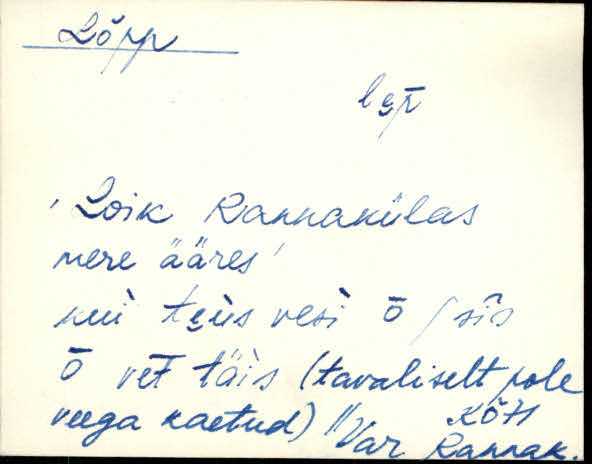 Lõpp
lep̄
'Loik Rannakülas
mere ääres'
kui tẹùs vesì ō / sī̀s
ō vet̄ täìs (tavaliselt pole
veega kaetud) // Var
Rannak.